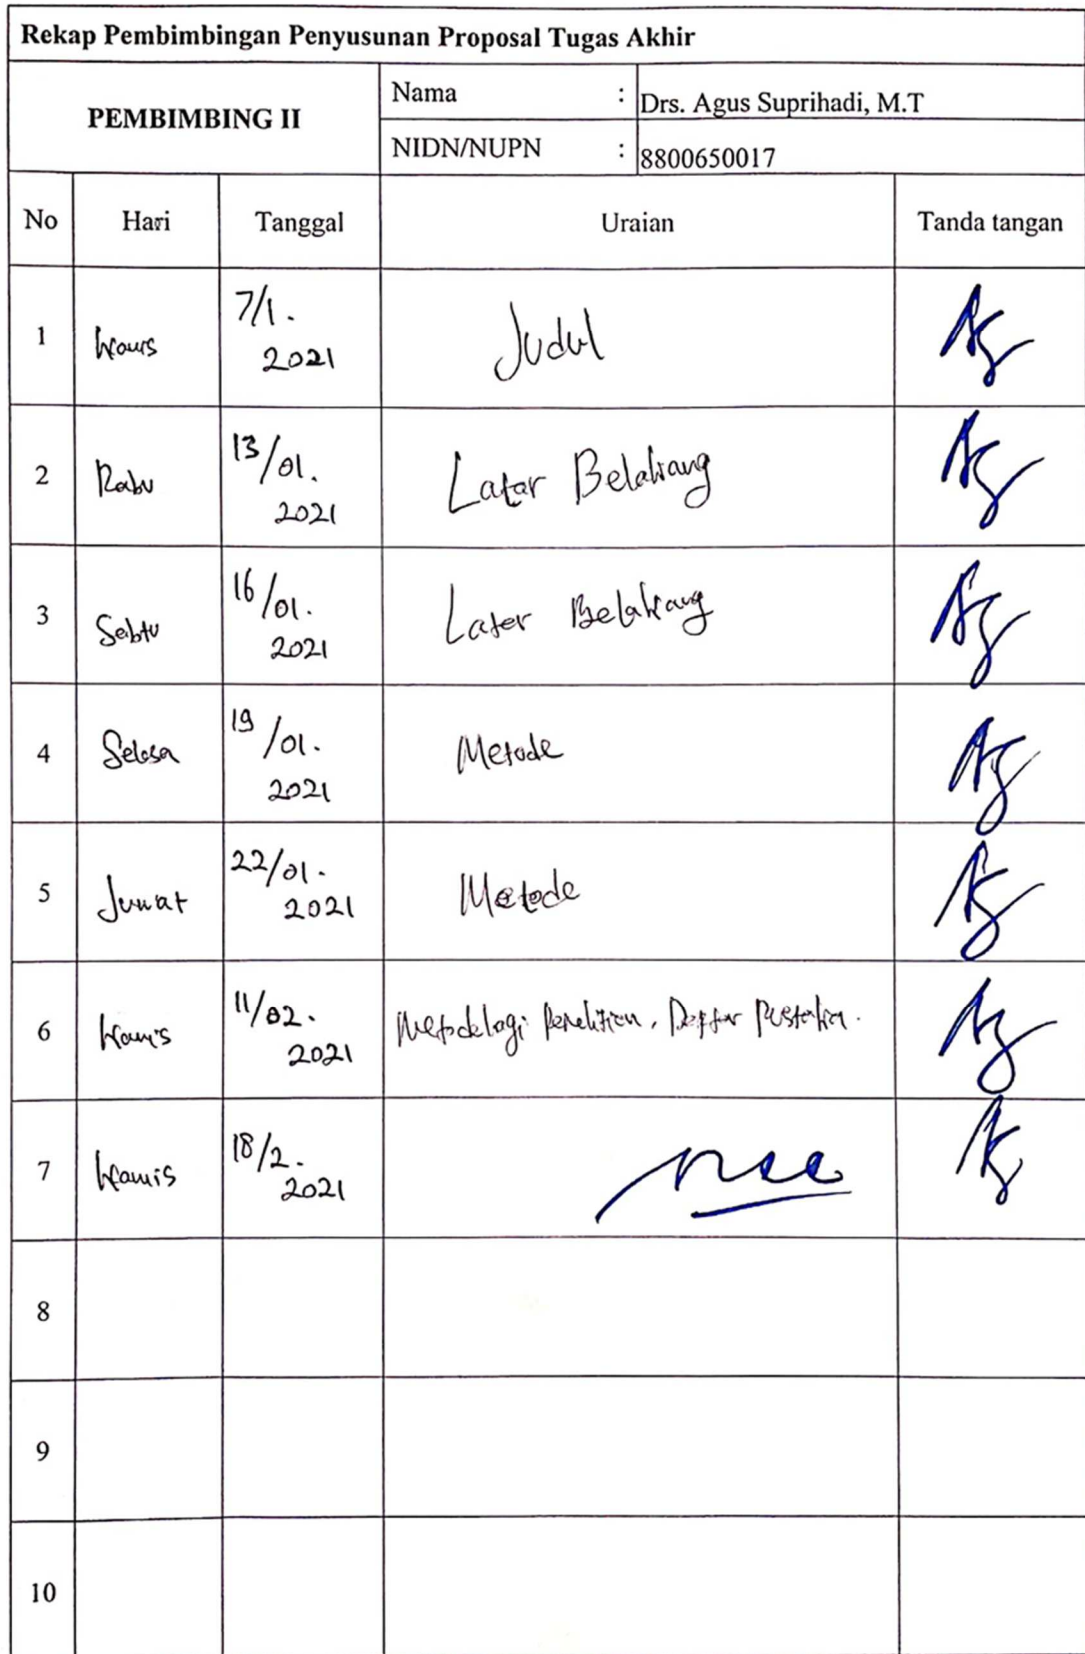 Rekap Pembimbingan Penyusunan Proposal Tugas Akhir
PEMBIMBING II
Nama : Drs. Agus Suprihadi, M.T
NIDN/NUPN : 8800650017
No Hari Tanggal Uraian Tanda tangan
1 Kamis 7/1. 2021 Judul
2 Rabu 13/01. 2021 Latar Belakang
3 Sabtu 16/01. 2021 Latar Belakang
4 Selasa 19/01. 2021 Metode
5 Jumat 22/01. 2021 Metode
6 Kamis 11/02. 2021 Metodelogi Penelitian, Daftar Pustaka.
7 Kamis 18/2. 2021
8
9
10